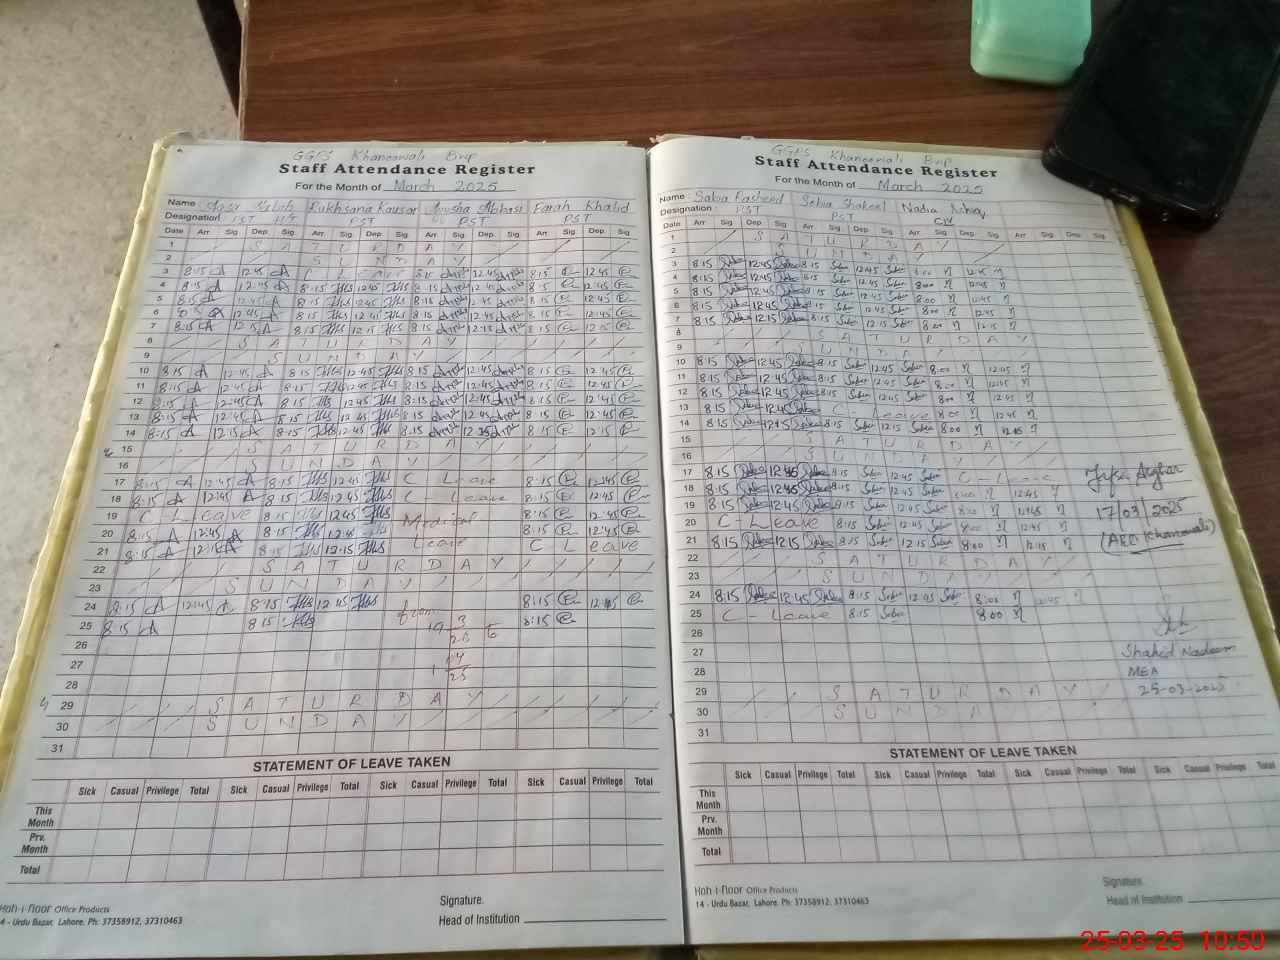 GGPS Khanoowali Bwp
Staff Attendance Register
For the Month of March 2025
Name Rukhsana Kausar Farah Khalid
Designation PST PST PST
Date Arr. Sig. Dep. Sig. Arr. Sig. Dep. Sig. Arr. Sig. Dep. Sig. Arr. Sig. Dep. Sig.
1 SATURDAY
2 SUNDAY
3 8:15 12:45 C-Leave 8:15 12:45 8:15 12:45
4 8:15 12:45 8:15 12:45 8:15 12:45 8:15 12:45
5 8:15 12:45 8:15 12:45 8:15 12:45 8:15 12:45
6 12:45 8:15 12:45 8:15 12:45 8:15 12:45
7 8:15 12:15 8:15 12:15 8:15 12:15 8:15 12:15
8 SATURDAY
9 SUNDAY
10 8:15 12:45 8:15 12:45 8:15 12:45 8:15 12:45
11 8:15 12:45 8:15 12:45 8:15 12:45 8:15 12:45
12 8:15 12:45 8:15 12:45 8:15 12:45 8:15 12:45
13 8:15 12:45 8:15 12:45 8:15 12:45 8:15 12:45
14 8:15 12:15 8:15 12:45 8:15 8:15 12:15
15 SATURDAY
16 SUNDAY
17 8:15 12:45 8:15 12:45 C Leave 8:15 12:45
18 8:15 12:45 8:15 12:45 C-Leave 8:15 12:45
19 C Leave 8:15 12:45 Medical 8:15 12:45
20 8:15 12:45 8:15 12:45 Leave 8:15 12:45
21 8:15 12:15 8:15 12:15 C Leave
22 SATURDAY
23 SUNDAY
24 8:15 12:45 8:15 12:45 from 8:15 12:45
25 8:15 8:15 19 3 25 to 8:15
26
27
28
29 SATURDAY
30 SUNDAY
31
STATEMENT OF LEAVE TAKEN
Sick Casual Privilege Total Sick Casual Privilege Total Sick Casual Privilege Total Sick Casual Privilege Total
This Month
Prv. Month
Total
Signature.
Head of Institution
Koh-i-noor Office Products
14 - Urdu Bazar, Lahore. Ph: 37358912, 37310463
GGPS Khanoowali Bwp
Staff Attendance Register
For the Month of March 2025
Name Rasheed Shakeel Nadia
Designation PST PST
Date Arr. Sig. Dep. Sig. Arr. Sig. Dep. Sig. Arr. Sig. Dep. Sig. Arr. Sig. Dep. Sig.
1 SATURDAY
2 SUNDAY
3 8:15 12:45 8:15 12:45 8:00 12:45
4 8:15 12:45 8:15 12:45 8:00 12:45
5 8:15 12:45 8:15 12:45 8:00 12:45
6 8:15 12:45 8:15 12:45 8:00 12:45
7 8:15 12:15 8:15 12:15 8:00 12:15
8 SATURDAY
9 SUNDAY
10 8:15 12:45 8:15 12:45 8:00 12:45
11 8:15 12:45 8:15 12:45 8:00 12:45
12 8:15 12:45 8:15 12:45 8:00 12:45
13 8:15 12:45 C-Leave 8:00 12:45
14 8:15 12:15 8:15 12:15 8:00
15 SATURDAY
16 SUNDAY
17 8:15 12:45 8:15 12:45 C-Leave
18 8:15 12:45 8:15 12:45 8:00 12:45
19 8:15 12:45 8:15 12:45 8:00 12:45
20 C-Leave 8:15 12:45 8:00 12:45
21 8:15 12:15 8:15 12:15 8:00 12:15
22 SATURDAY
23 SUNDAY
24 8:15 12:45 8:15 12:45 8:00 12:45
25 C-Leave 8:15 8:00
26
27
28
29 SATURDAY
30 SUNDAY
31
Asghar
17/03/2025
(AEO Khanowali)
Shahid Nadeem
MEA
25-03-2025
STATEMENT OF LEAVE TAKEN
Sick Casual Privilege Total Sick Casual Privilege Total Sick Casual Privilege Total Sick Casual Privilege Total
This Month
Prv. Month
Total
Signature.
Head of Institution
Koh-i-noor Office Products
14 - Urdu Bazar, Lahore. Ph: 37358912, 37310463
25-03-25 10:50